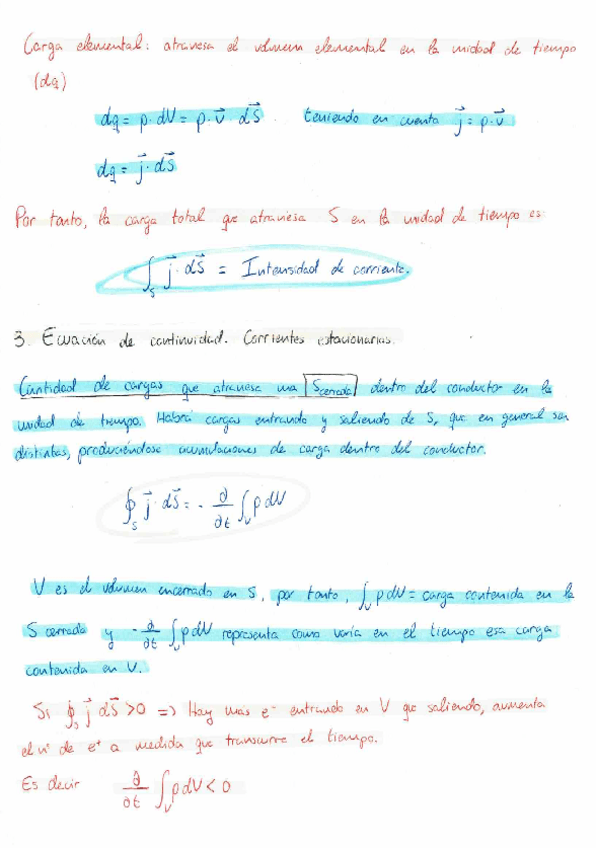 Carga elemental: atraviesa el volumen elemental en la unidad de tiempo
(dq)
dq = ρ · dV = ρ · v⃗ · dS⃗ teniendo en cuenta j⃗ = ρ · v⃗
dq = j⃗ · dS⃗
Por tanto, la carga total que atraviesa S en la unidad de tiempo es:
∫_S j⃗ · dS⃗ = Intensidad de corriente.
3. Ecuación de continuidad. Corrientes estacionarias.
Cantidad de cargas que atraviesa una S cerrada dentro del conductor en la
unidad de tiempo. Habrá cargas entrando y saliendo de S, que en general son
distintas, produciéndose acumulaciones de carga dentro del conductor.
∮_S j⃗ · dS⃗ = - ∂/∂t ∫_V ρ dV
V es el volumen encerrado en S, por tanto, ∫_V ρ dV = carga contenida en la
S cerrada y - ∂/∂t ∫_V ρ dV representa como varía en el tiempo esa carga
contenida en V.
Si ∮_S j⃗ dS⃗ > 0 => Hay mas e⁻ entrando en V que saliendo, aumenta
el nº de e⁺ a medida que transcurre el tiempo.
Es decir ∂/∂t ∫_V ρ dV < 0